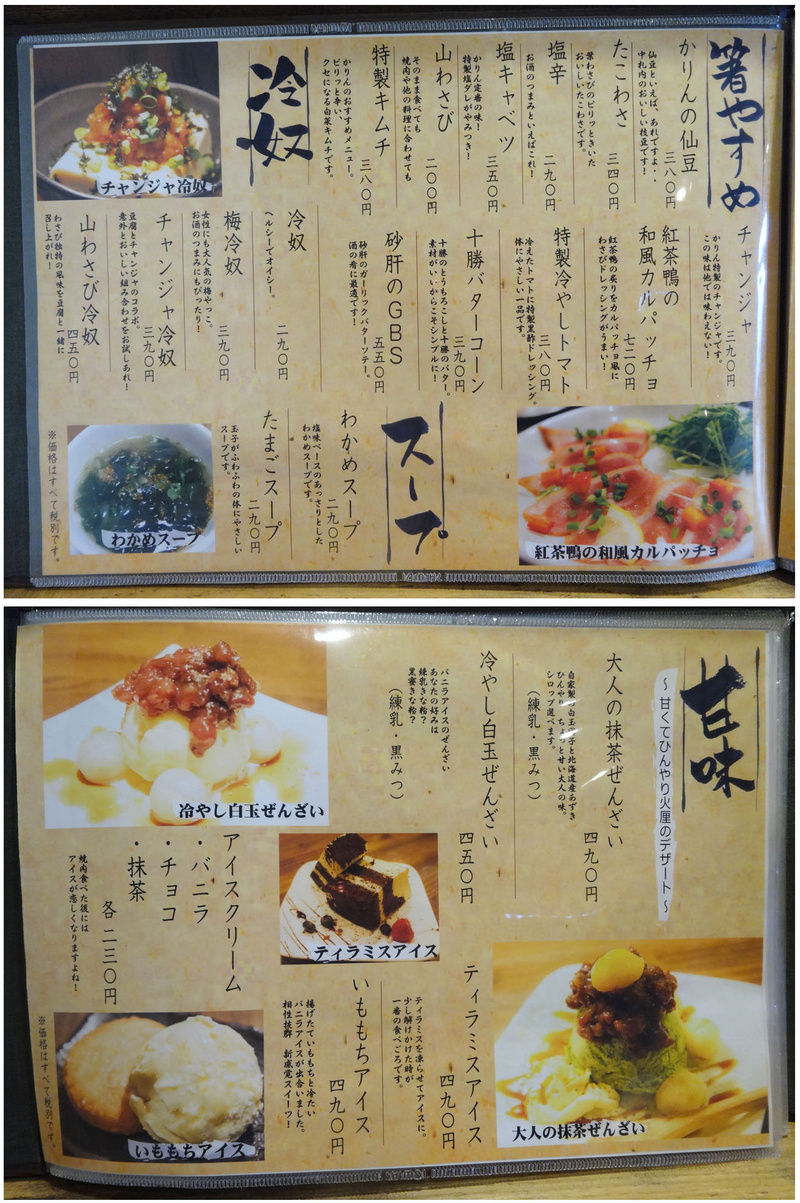 箸やすめ
かりんの仙豆
三八〇円
仙豆といえば、あれですよ・・
中札内のおいしい枝豆です!
たこわさ
三四〇円
葉わさびのピリッときいた
おいしいたこわさです。
塩辛
二九〇円
お酒のつまみといえばこれ!
塩キャベツ
三五〇円
かりん定番の味!
特製塩ダレがやみつき!
山わさび
二〇〇円
そのまま食べても
焼肉や他の料理に合わせても
特製キムチ
三八〇円
かりんのおすすめメニュー。
ピリッと辛い、
クセになる白菜キムチです。
冷奴
チャンジャ冷奴
チャンジャ
三九〇円
かりん特製のチャンジャです。
この味は他では味わえない!
紅茶鴨の
和風カルパッチョ
七二〇円
紅茶鴨の炙りをカルパッチョ風に
わさびドレッシングがうまい!
特製冷やしトマト
三八〇円
冷えたトマトに特製黒酢ドレッシング。
体にやさしい一品です。
十勝バターコーン
三九〇円
十勝のとうもろこしと十勝のバター。
素材がいいからこそシンプルに!
砂肝のGBS
五五〇円
砂肝のガーリックバターソテー。
酒の肴に最適です!
冷奴
二九〇円
ヘルシーでオイシー。
梅冷奴
三九〇円
女性にも大人気の梅やっこ。
お酒のつまみにもぴったり!
チャンジャ冷奴
三九〇円
豆腐とチャンジャのコラボ。
意外とおいしい組み合わせをお試しあれ!
山わさび冷奴
四五〇円
わさび独特の風味を豆腐と一緒に
召し上がれ!
紅茶鴨の和風カルパッチョ
スープ
わかめスープ
二九〇円
塩味ベースのあっさりとした
わかめスープです。
たまごスープ
二九〇円
玉子がふわふわの体にやさしい
スープです。
わかめスープ
※価格はすべて税別です。
甘味
~甘くてひんやり火厘のデザート~
大人の抹茶ぜんざい
四九〇円
自家製の白玉団子と北海道産あずき
ひんやり、ちょっと甘い大人の味。
シロップ選べます。
(練乳・黒みつ)
冷やし白玉ぜんざい
四五〇円
バニラアイスのぜんざい
あなたの好みは
練乳きな粉?
黒蜜きな粉?
(練乳・黒みつ)
冷やし白玉ぜんざい
ティラミスアイス
アイスクリーム
・バニラ
・チョコ
・抹茶
各 二三〇円
焼肉食べた後には
アイスが恋しくなりますよね!
大人の抹茶ぜんざい
ティラミスアイス
四九〇円
ティラミスを凍らせてアイスに。
少し解けかけた時が
一番の食べごろです。
いももちアイス
四九〇円
揚げたていももちと冷たい
バニラアイスが出合いました。
相性抜群 新感覚スイーツ!
いももちアイス
※価格はすべて税別です。